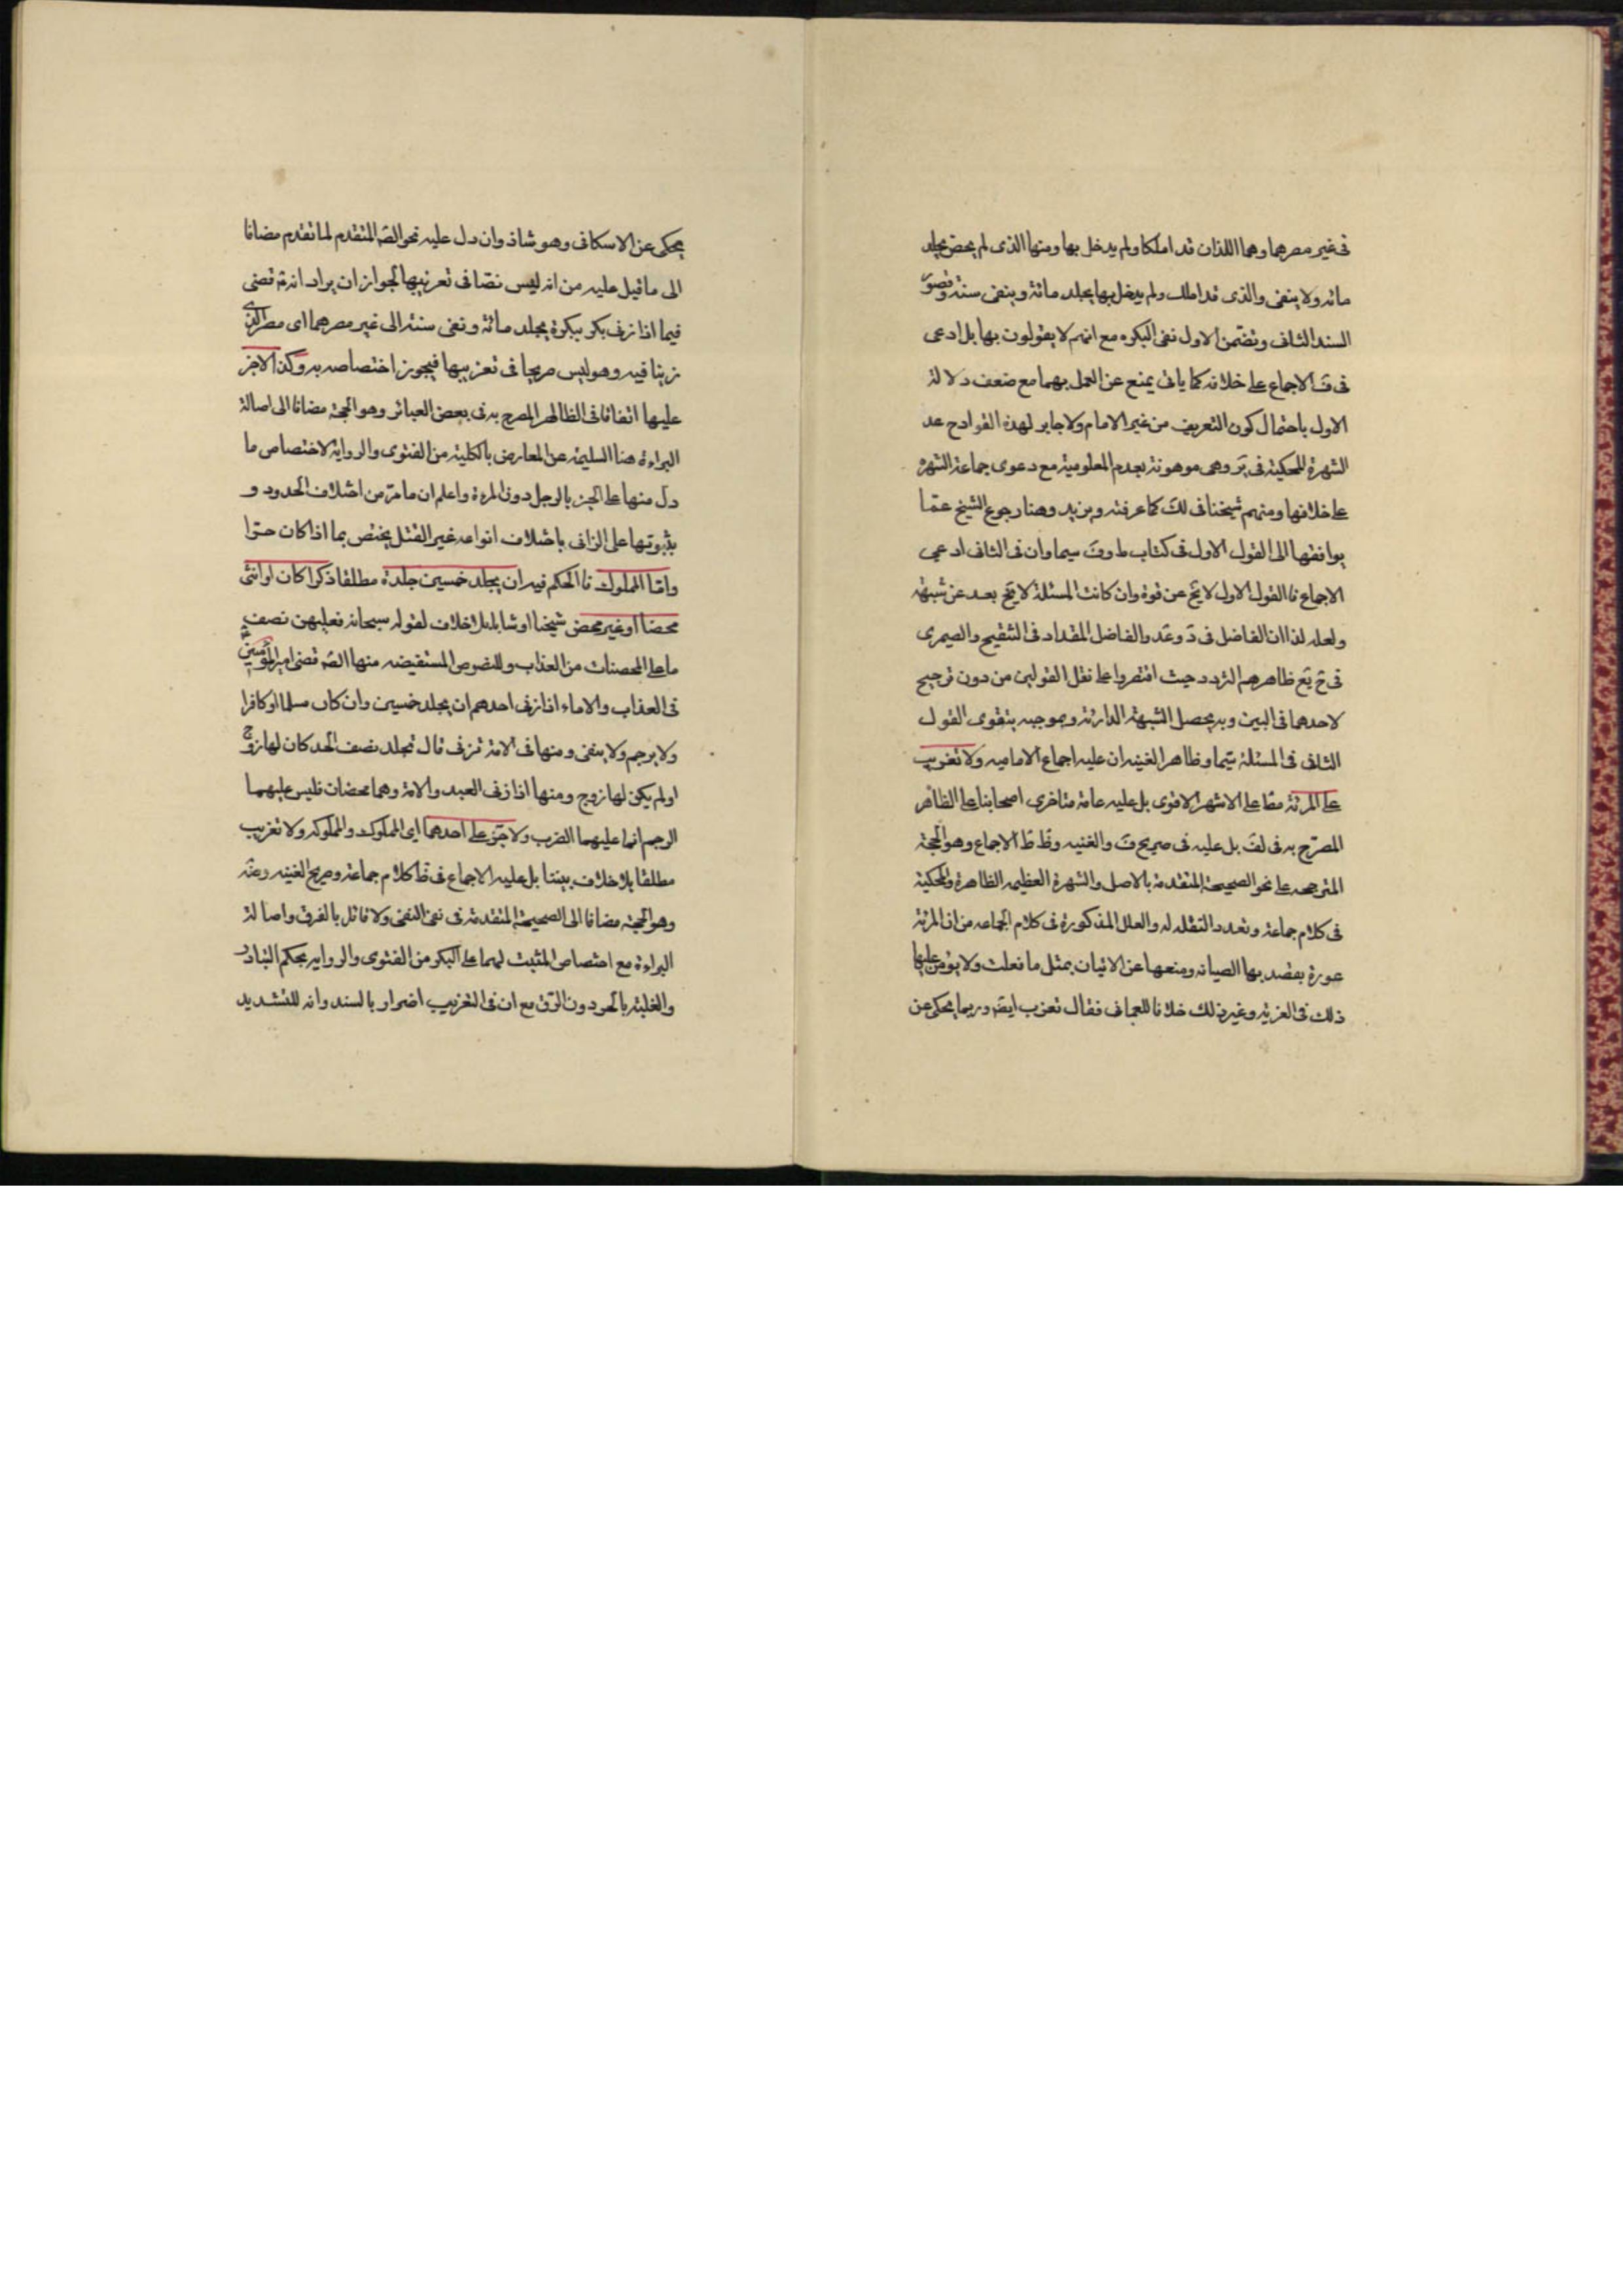 فى غير مصرهما وهما اللذان قد املكا ولم يدخل بها ومنها الذى لم يحصن يجلد
مائه ولا ينفى والذى قد املك ولم يدخل بها يجلد مائة وينفى سنة وقصور
السند الثانى وتضمن الاول نفى البكره مع انهم لا يقولون بها بل ادعى
فى ف الاجماع على خلافه كما ياتى يمنع عن العمل بهما مع ضعف دلالة
الاول باحتمال كون التعريف من غير الامام ولا جابر لهذه القوادح عد
الشهرة المحكية فى ير وهى موهونة بعدم المعلومية مع دعوى جماعة الشهرة
على خلافها ومنهم شيخنا فى لك كما عرفته ويزيد وهنا رجوع الشيخ عما
يوافقها الى القول الاول فى كتاب ط وف سيما وان فى الثانى ادعى
الاجماع فا القول الاول لا يخ عن قوة وان كانت المسئلة لا يخ بعد عن شبهة
ولعله لذا ان الفاضل فى د وعد والفاضل المقداد فى التنقيح والصيمرى
فى ح يع ظاهرهم التردد حيث اقتصروا على نقل القولين من دون ترجيح
لاحدهما فى البين وبه يحصل الشبهة الدارئة وبموجبه يتقوى القول
الثانى فى المسئلة سيما وظاهر الغنيه ان عليه اجماع الاماميه ولا تغريب
على المرئة مطا على الاشهر الاقوى بل عليه عامة متاخرى اصحابنا على الظاهر
المصرح به فى لف بل عليه فى صريح ف والغنيه وظ ط الاجماع وهو الحجة
المترجحه على نحو الصحيحة المتقدمة بالاصل والشهرة العظيمه الظاهرة والمحكية
فى كلام جماعة وتعدد النقله له والعلل المذكورة فى كلام الجماعه من ان المرئة
عورة يقصد بها الصيانه ومنعها عن الاتيان بمثل ما فعلت ولا يؤمن عليها
ذلك فى الغربة وغير ذلك خلافا للعمانى فقال تغرب ايضا وربما يحكى عن
يحكى عن الاسكافى وهو شاذ وان دل عليه نحو الصة المتقدم لما تقدم مضافا
الى ما قيل عليه من انه ليس نصا فى تغريبها لجواز ان يراد انه قضى
فيما اذا زنى بكر ببكرة بجلد مائة ونفى سنة الى غير مصرهما اى مصر الذى
زنيا فيه وهو ليس صريحا فى تغريبها فيجوز اختصاصه به وكذا لا جز
عليها اتفاقا فى الظاهر المصرح به فى بعض العبائر وهو الحجة مضافا الى اصالة
البراءة هنا السليمة عن المعارض بالكلية من الفتوى والرواية لاختصاص ما
دل منها على الجز بالرجل دون المرءة واعلم ان ما مر من اختلاف الحدود و
ثبوتها على الزانى باختلاف انواعه غير القتل يختص بما اذا كان حرا
واما المملوك فا الحكم فيه ان يجلد خمسين جلدة مطلقا ذكرا كان او انثى
محصنا او غير محصن شيخا او شابا بلا خلاف لقوله سبحانه فعليهن نصف
ما على المحصنات من العذاب وللنصوص المستفيضه منها الصة قضى امير المؤمنين
فى العبد والاماء اذا زنى احدهم ان يجلد خمسين وان كان مسلما او كافرا
ولا يرجم ولا ينفى ومنها فى الامة تزنى قال تجلد نصف الحد كان لها زوج
او لم يكن لها زوج ومنها اذا زنى العبد والامة وهما محصنان فليس عليهما
الرجم انما عليهما الضرب ولا جز على احدهما اى المملوك والمملوكه ولا تغريب
مطلقا بلا خلاف بيننا بل عليه الاجماع فى ظ كلام جماعة وصريح الغنيه وعد
وهو الحجة مضافا الى الصحيحة المتقدمة فى نفى النفى ولا قائل بالفرق واصالة
البراءة مع اختصاص المثبت لهما على البكر من الفتوى والروايه بحكم التبادر
والغلبة بالحر دون الرق مع ان فى التغريب اضرار بالسيد وانه للتشديد